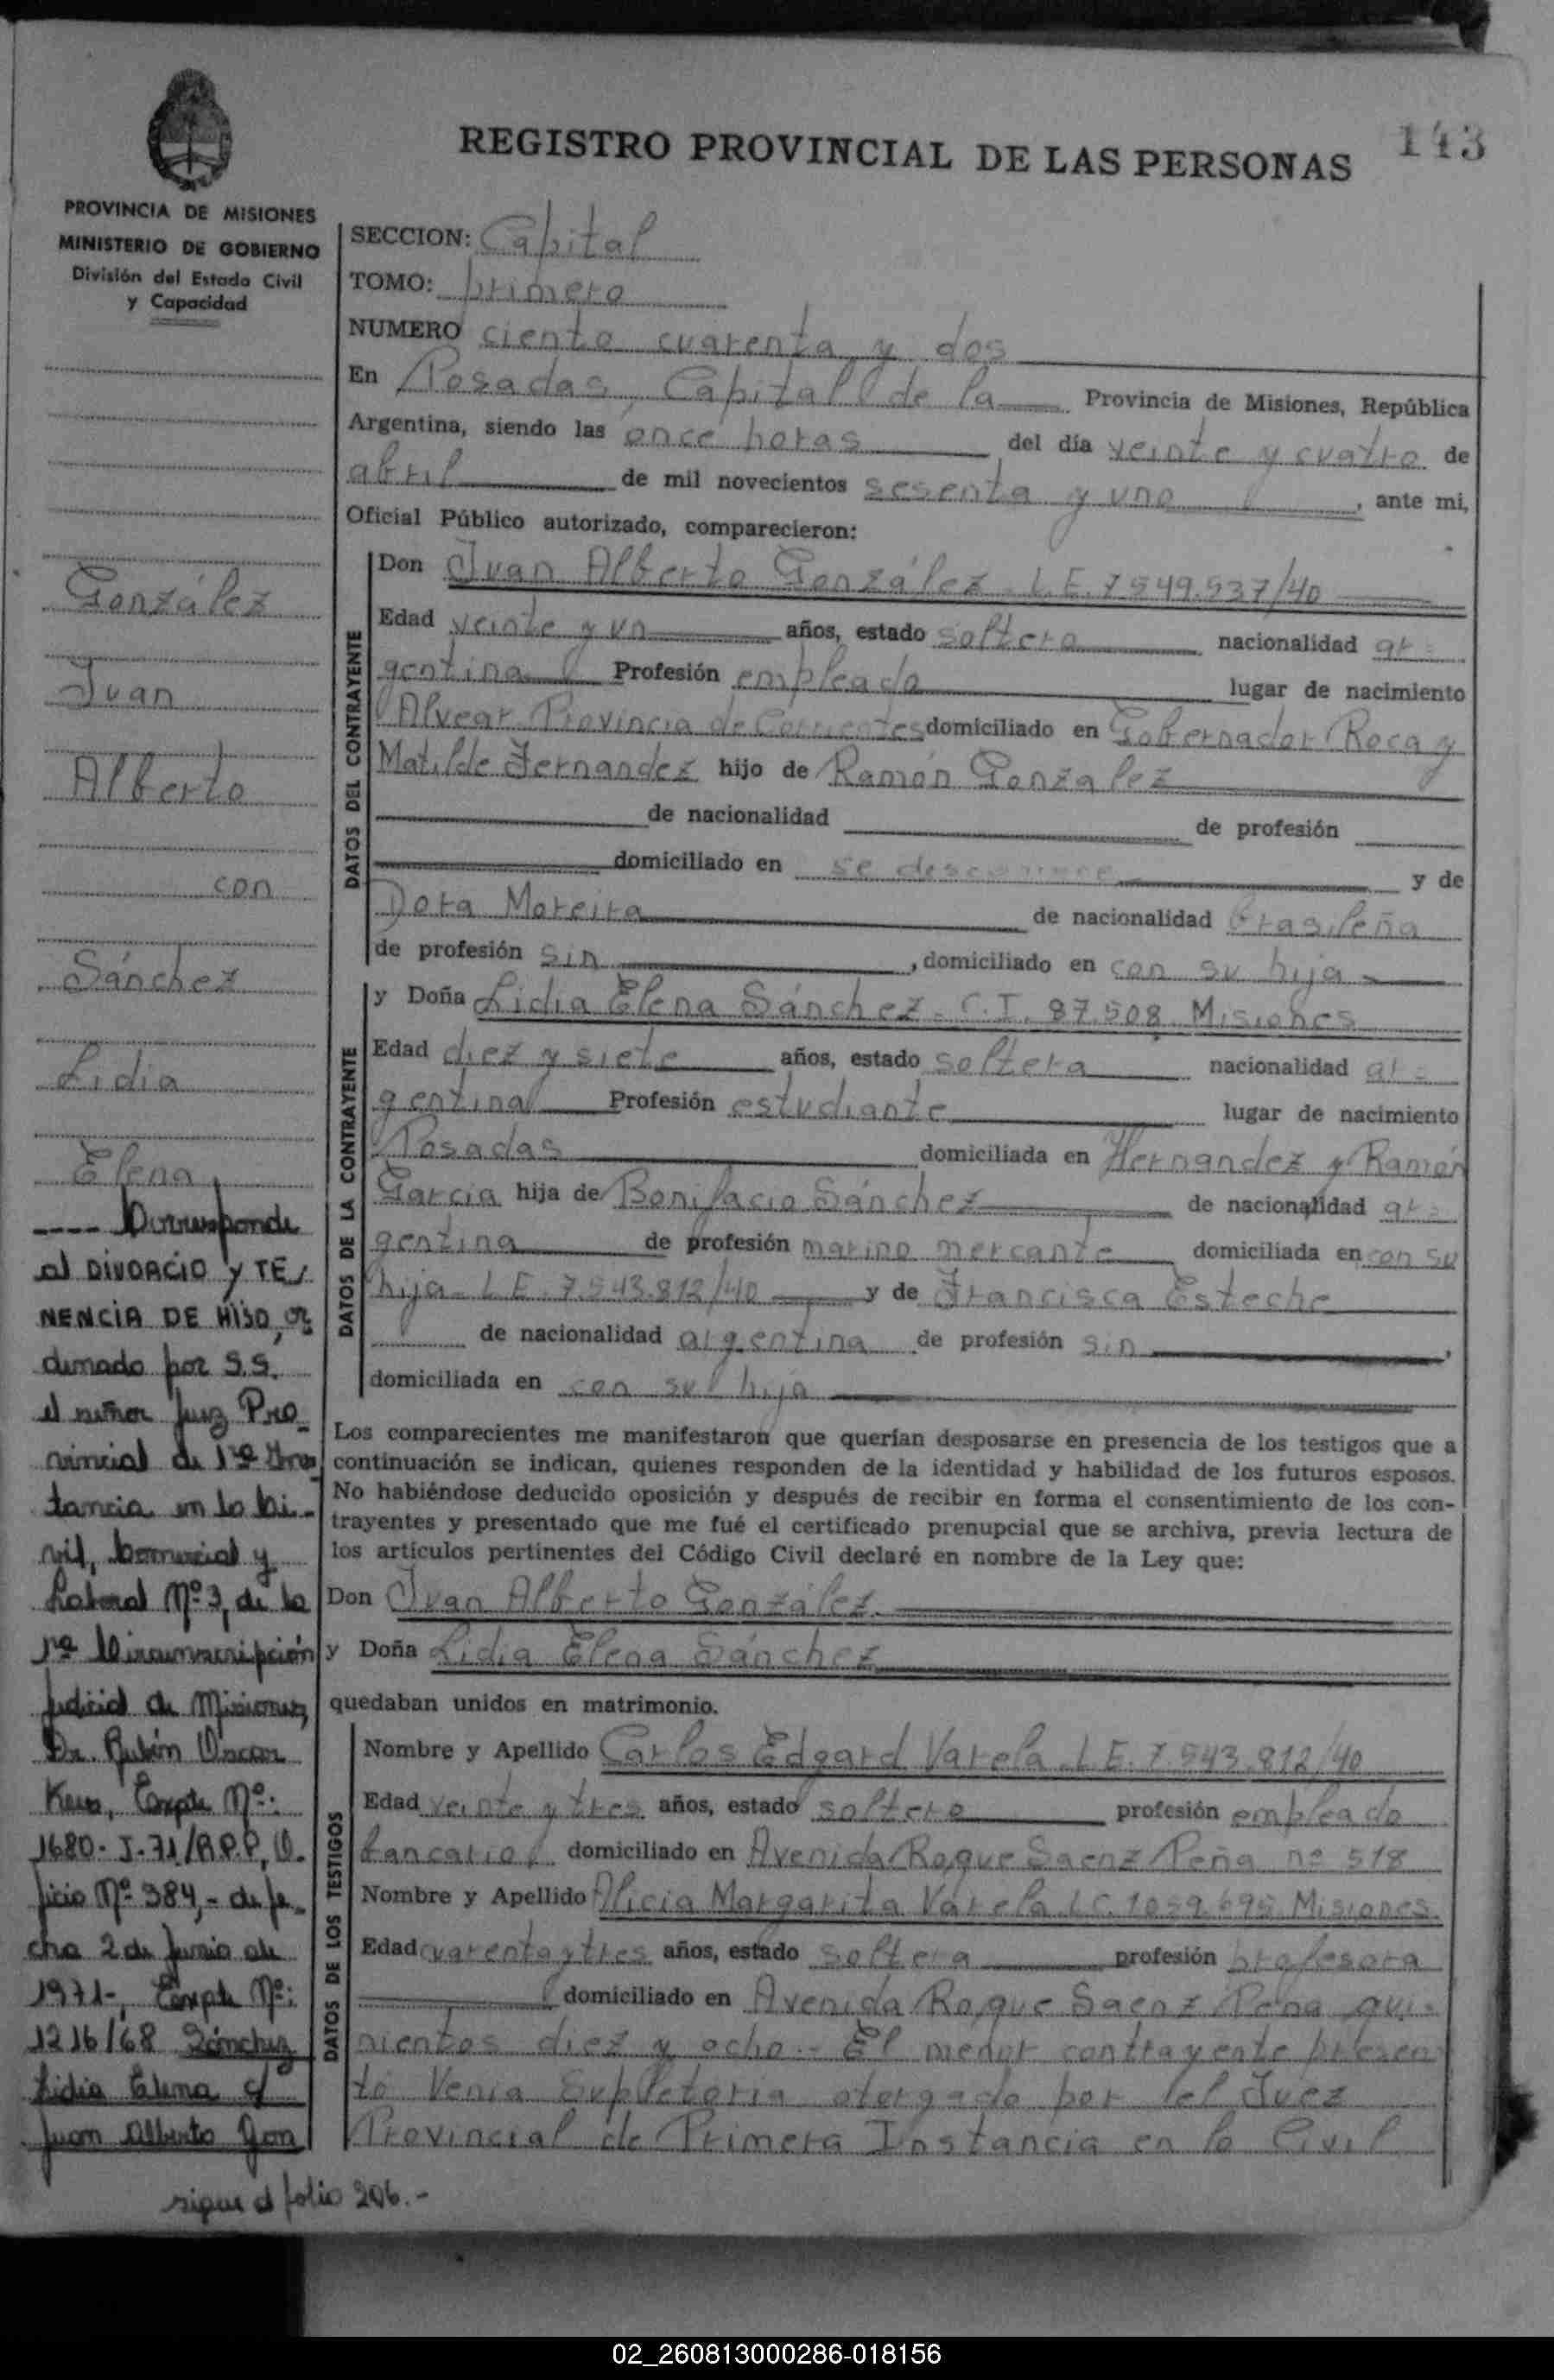 REGISTRO PROVINCIAL DE LAS PERSONAS
143
PROVINCIA DE MISIONES
MINISTERIO DE GOBIERNO
División del Estado Civil
y Capacidad
González
Juan
Alberto
con
Sánchez
Lidia
Elena
---- Corresponde
al DIVORCIO y TE-
NENCIA DE HIJO, or
denado por S.S.
el señor Juez Pro-
vincial de 1ra Ins-
tancia en lo Ci-
vil, Comercial y
Laboral Nº 3, de la
1ra Circunscripción
Judicial de Misiones,
Dr. Rubén Oscar
Expte Nº:
1680- J-71/A.P.P, O-
ficio Nº 384,- de fe-
cha 2 de Junio de
1971-, Expte Nº:
1216/68 Sánchez
Lidia Elena c/
Juan Alberto Gon
sigue al folio 206.-
SECCION: Capital
TOMO: primero
NUMERO ciento cuarenta y dos
En Posadas, Capital de la Provincia de Misiones, República
Argentina, siendo las once horas del día veinte y cuatro de
abril de mil novecientos sesenta y uno, ante mi,
Oficial Público autorizado, comparecieron:
DATOS DEL CONTRAYENTE
Don Juan Alberto González - L.E. 7.549.537/40
Edad veinte y un años, estado soltero nacionalidad ar=
gentina Profesión empleado lugar de nacimiento
Alvear Provincia de Corrientes domiciliado en Gobernador Roca y
Matilde Fernandez hijo de Ramón Gonzalez
de nacionalidad de profesión
domiciliado en se desconoce y de
Dora Moreira de nacionalidad brasileña
de profesión sin, domiciliado en con su hija
DATOS DE LA CONTRAYENTE
y Doña Lidia Elena Sánchez - C.I. 87.508 Misiones
Edad diez y siete años, estado soltera nacionalidad ar=
gentina Profesión estudiante lugar de nacimiento
Posadas domiciliada en Hernandez y Ramón
García hija de Bonifacio Sánchez de nacionalidad ar=
gentina de profesión marino mercante domiciliada en con su
hija - L.E. 7.543.812/40 y de Francisca Esteche
de nacionalidad argentina de profesión sin,
domiciliada en con su hija
Los comparecientes me manifestaron que querían desposarse en presencia de los testigos que a
continuación se indican, quienes responden de la identidad y habilidad de los futuros esposos.
No habiéndose deducido oposición y después de recibir en forma el consentimiento de los con-
trayentes y presentado que me fué el certificado prenupcial que se archiva, previa lectura de
los artículos pertinentes del Código Civil declaré en nombre de la Ley que:
Don Juan Alberto González
y Doña Lidia Elena Sánchez
quedaban unidos en matrimonio.
DATOS DE LOS TESTIGOS
Nombre y Apellido Carlos Edgard Varela - L.E. 7.543.812/40
Edad veinte y tres años, estado soltero profesión empleado
bancario domiciliado en Avenida Roque Saenz Peña nº 518
Nombre y Apellido Alicia Margarita Varela L.C. 1.059.695 Misiones
Edad cuarenta y tres años, estado soltera profesión profesora
domiciliado en Avenida Roque Saenz Peña qui-
nientos diez y ocho.- El menor contrayente presen
tó Venia Supletoria otorgado por el Juez
Provincial de Primera Instancia en lo Civil
02_260813000286-018156